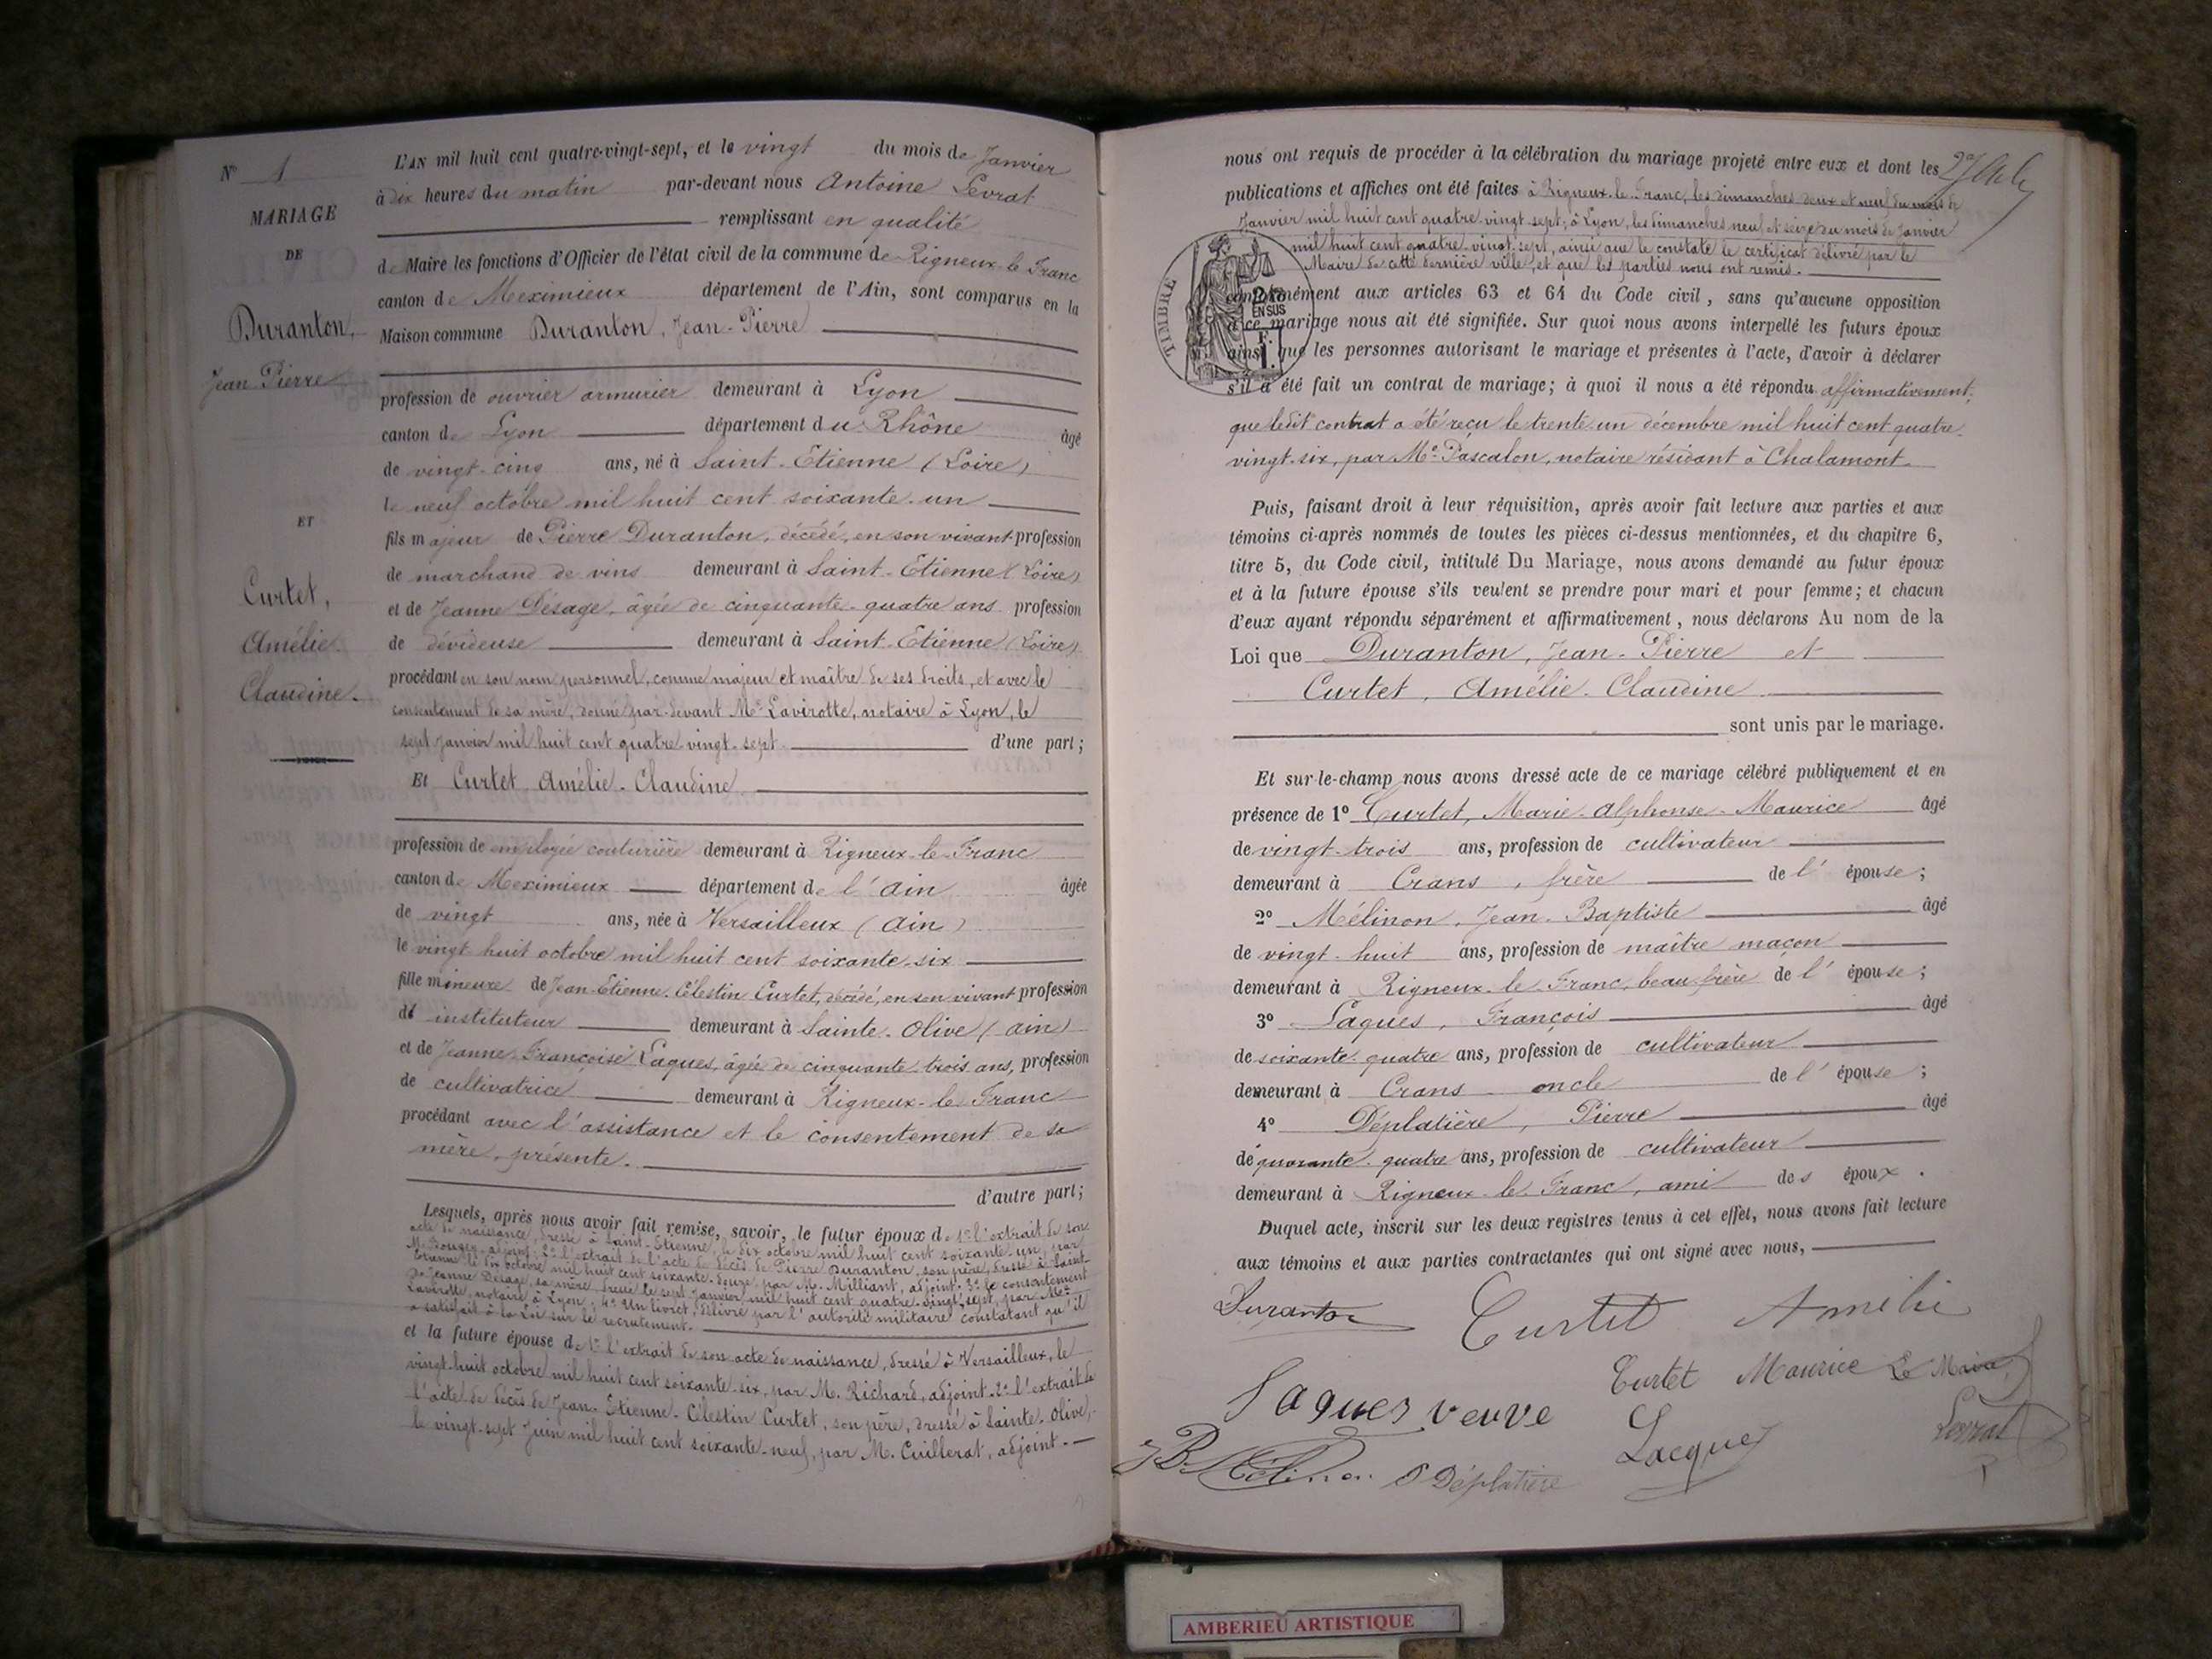 N° 1
MARIAGE
DE
Duranton,
Jean Pierre
ET
Curtet,
Amélie
Claudine.
L'AN mil huit cent quatre-vingt-sept, et le vingt du mois de Janvier
à dix heures du matin par-devant nous Antoine Levrat
remplissant en qualité
de Maire les fonctions d'Officier de l'état civil de la commune de Rigneux-le-Franc
canton de Meximieux département de l'Ain, sont comparus en la
Maison commune Duranton, Jean-Pierre
profession de ouvrier armurier demeurant à Lyon
canton de Lyon département du Rhône âgé
de vingt-cinq ans, né à Saint-Etienne (Loire)
le neuf octobre mil huit cent soixante-un
fils majeur de Pierre Duranton, décédé, en son vivant profession
de marchand de vins demeurant à Saint-Etienne (Loire)
et de Jeanne Désage, âgée de cinquante-quatre ans profession
de dévideuse demeurant à Saint-Etienne (Loire)
procédant en son nom personnel, comme majeur et maître de ses droits, et avec le
consentement de sa mère, donné par-devant Me Lavirotte, notaire à Lyon, le
sept janvier mil huit cent quatre-vingt-sept d'une part;
Et Curtet Amélie-Claudine
profession de employée couturière demeurant à Rigneux-le-Franc
canton de Meximieux département de l'Ain âgée
de vingt ans, née à Versailleux (Ain)
le vingt huit octobre mil huit cent soixante-six
fille mineure de Jean-Etienne-Célestin Curtet, décédé, en son vivant profession
d' instituteur demeurant à Sainte-Olive (Ain)
et de Jeanne-Françoise Laques, âgée de cinquante-trois ans, profession
de cultivatrice demeurant à Rigneux-le-Franc
procédant avec l'assistance et le consentement de sa
mère, présente.
d'autre part;
Lesquels, après nous avoir fait remise, savoir, le futur époux de 1° l'extrait de son
acte de naissance, dressé à Saint-Etienne, le dix octobre mil huit cent soixante-un, par
M. Rouger, adjoint. 2° l'extrait de l'acte de décès de Pierre Duranton, son père, dressé à Saint-
Etienne le dix octobre mil huit cent soixante-douze, par M. Milliant, adjoint. 3° le consentement
de Jeanne Désage, sa mère, dressé le sept janvier mil huit cent quatre-vingt-sept, par Me
Lavirotte, notaire à Lyon; 4° Un livret, délivré par l'autorité militaire constatant qu'il
a satisfait à la Loi sur le recrutement.
et la future épouse de 1° l'extrait de son acte de naissance, dressé à Versailleux, le
vingt-huit octobre mil huit cent soixante-six, par M. Richard, adjoint. 2° l'extrait de
l'acte de décès de Jean-Etienne-Célestin Curtet, son père, dressé à Sainte-Olive,
le vingt-sept Juin mil huit cent soixante-neuf, par M. Cuillerat, adjoint.
nous ont requis de procéder à la célébration du mariage projeté entre eux et dont les
publications et affiches ont été faites à Rigneux-le-Franc, les dimanches deux et neuf du mois de
Janvier mil huit cent quatre-vingt-sept; à Lyon, les dimanches neuf et seize du mois de Janvier
mil huit cent quatre-vingt-sept, ainsi que le constate le certificat délivré par le
Maire de cette dernière ville, et que les parties nous ont remis.
TIMBRE
EN SUS
conformément aux articles 63 et 64 du Code civil, sans qu'aucune opposition
à ce mariage nous ait été signifiée. Sur quoi nous avons interpellé les futurs époux
ainsi que les personnes autorisant le mariage et présentes à l'acte, d'avoir à déclarer
s'il a été fait un contrat de mariage; à quoi il nous a été répondu affirmativement,
que ledit contrat a été reçu le trente-un décembre mil huit cent quatre-
vingt-six, par Me Pascalon, notaire résidant à Chalamont.
Puis, faisant droit à leur réquisition, après avoir fait lecture aux parties et aux
témoins ci-après nommés de toutes les pièces ci-dessus mentionnées, et du chapitre 6,
titre 5, du Code civil, intitulé Du Mariage, nous avons demandé au futur époux
et à la future épouse s'ils veulent se prendre pour mari et pour femme; et chacun
d'eux ayant répondu séparément et affirmativement, nous déclarons Au nom de la
Loi que Duranton, Jean-Pierre et
Curtet, Amélie-Claudine
sont unis par le mariage.
Et sur-le-champ nous avons dressé acte de ce mariage célébré publiquement et en
présence de 1° Curtet, Marie-Alphonse-Maurice âgé
de vingt-trois ans, profession de cultivateur
demeurant à Crans, frère de l' épouse;
2° Mélinon, Jean-Baptiste âgé
de vingt-huit ans, profession de maître maçon
demeurant à Rigneux-le-Franc, beau frère de l' épouse;
3° Laques, François âgé
de soixante-quatre ans, profession de cultivateur
demeurant à Crans oncle de l' épouse;
4° Déplatière, Pierre âgé
de quarante-quatre ans, profession de cultivateur
demeurant à Rigneux-le-Franc, ami des époux.
Duquel acte, inscrit sur les deux registres tenus à cet effet, nous avons fait lecture
aux témoins et aux parties contractantes qui ont signé avec nous,
Duranton Curtet Amélie
Curtet Maurice Le Maire
Laques veuve Lacques Levrat
JB Mélinon P Déplatière
AMBERIEU ARTISTIQUE